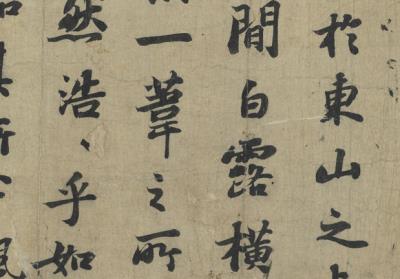 於東山之上
間白露橫
一葦之所
然浩〻乎如
其所